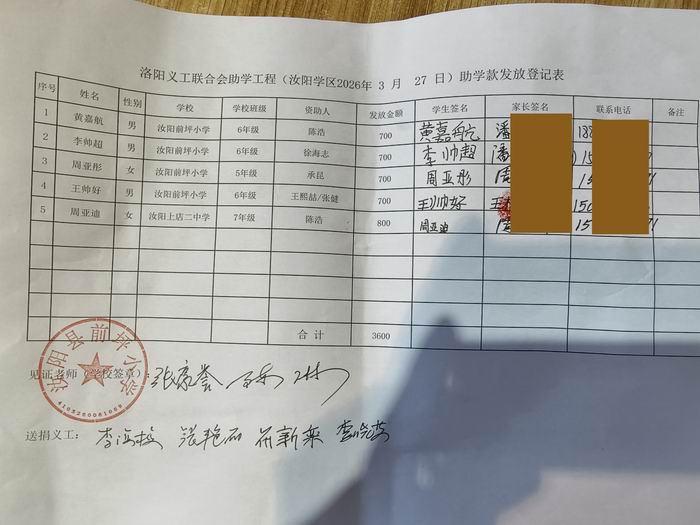 洛阳义工联合会助学工程（汝阳学区2026年 3 月 27 日）助学款发放登记表
序号 姓名 性别 学校 学校班级 资助人 发放金额 学生签名 家长签名 联系电话 备注
1 黄嘉航 男 汝阳前坪小学 6年级 陈浩 700 黄嘉航 潘 188
2 李帅超 男 汝阳前坪小学 6年级 徐海志 700 李帅超 潘 15
3 周亚彤 女 汝阳前坪小学 5年级 承昆 700 周亚彤 周 15
4 王帅好 男 汝阳前坪小学 6年级 王熙喆/张健 700 王帅好 王 150
5 周亚迪 女 汝阳上店二中学 7年级 陈浩 800 周亚迪 周 15
合 计 3600
汝阳县前坪小学
4103260061069
见证老师（学校签章）：张豪誉
送捐义工： 张艳